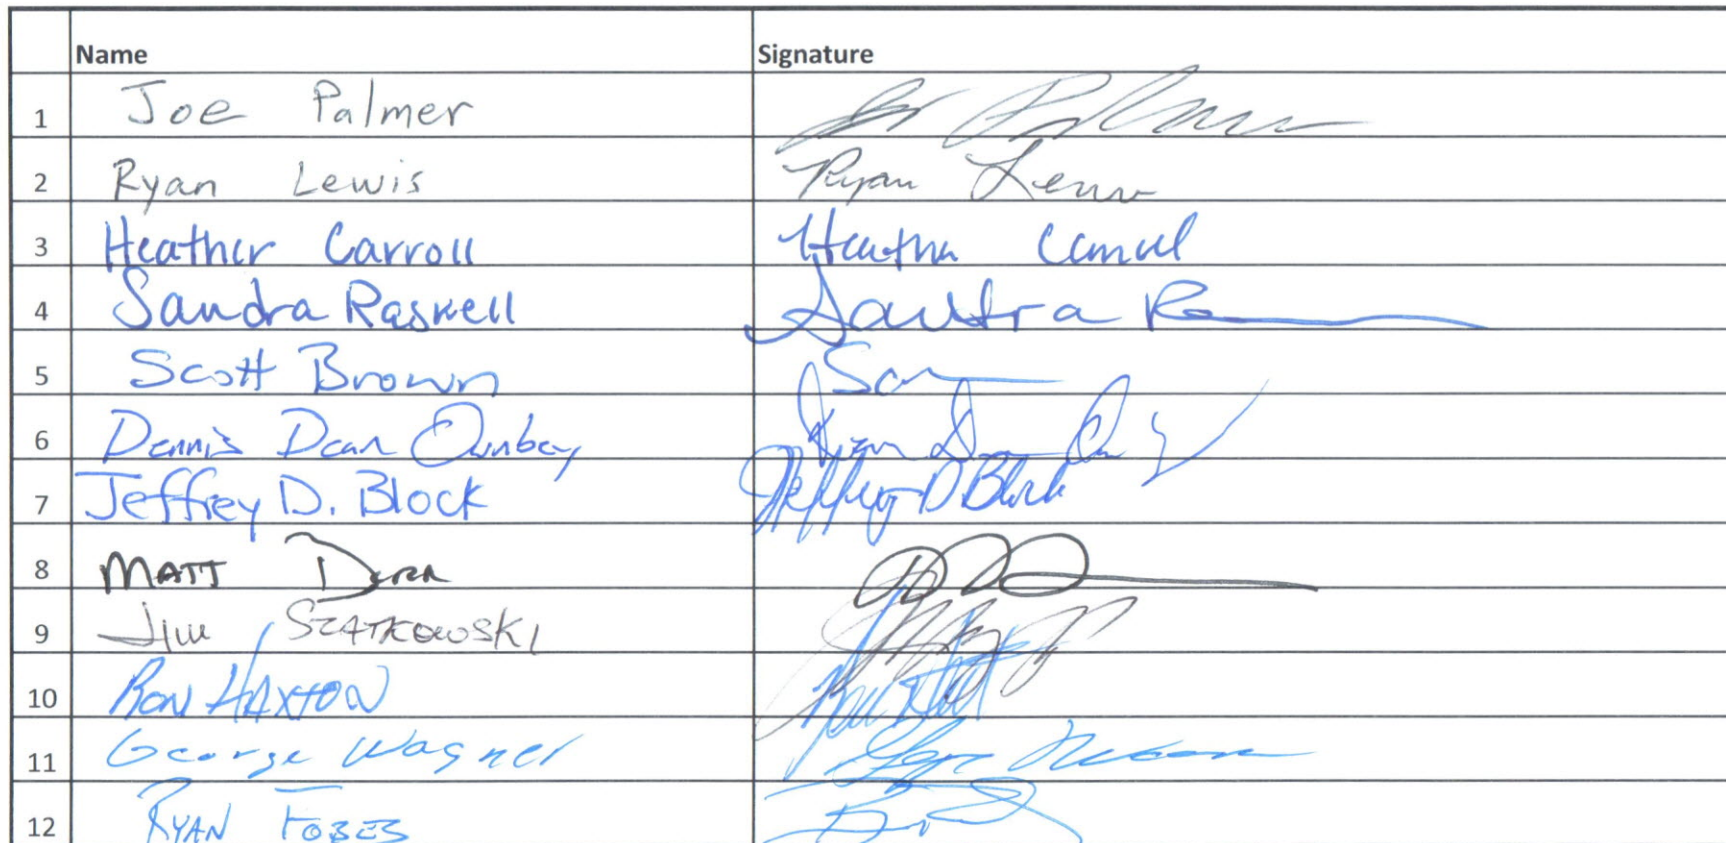 Name Signature
1 Joe Palmer
2 Ryan Lewis Ryan Lewis
3 Heather Carroll Heather Carroll
4 Sandra Raskell Sandra
5 Scott Brown
6 Dennis Dean Ownbey
7 Jeffrey D. Block Jeffrey D Block
8 MATT
9 Jim SZATKOWSKI
10 RON HAXTON
11 George Wagner
12 RYAN FOBES